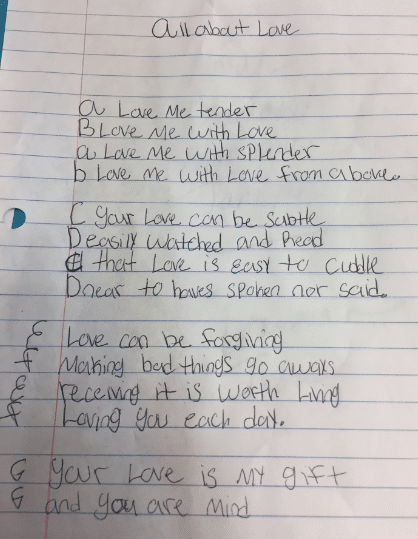 All about Love
a Love Me tender
B Love Me with Love
a Love Me with Splender
b Love me with Love from above.
C your Love can be Subtle
D easily watched and Read
C that Love is easy to cuddle
D near to haves spoken nor said.
e Love can be forgiving
f Making bad things go aways
e receving it is worth Living
f Loving you each day.
G your Love is My gift
G and you are Mind